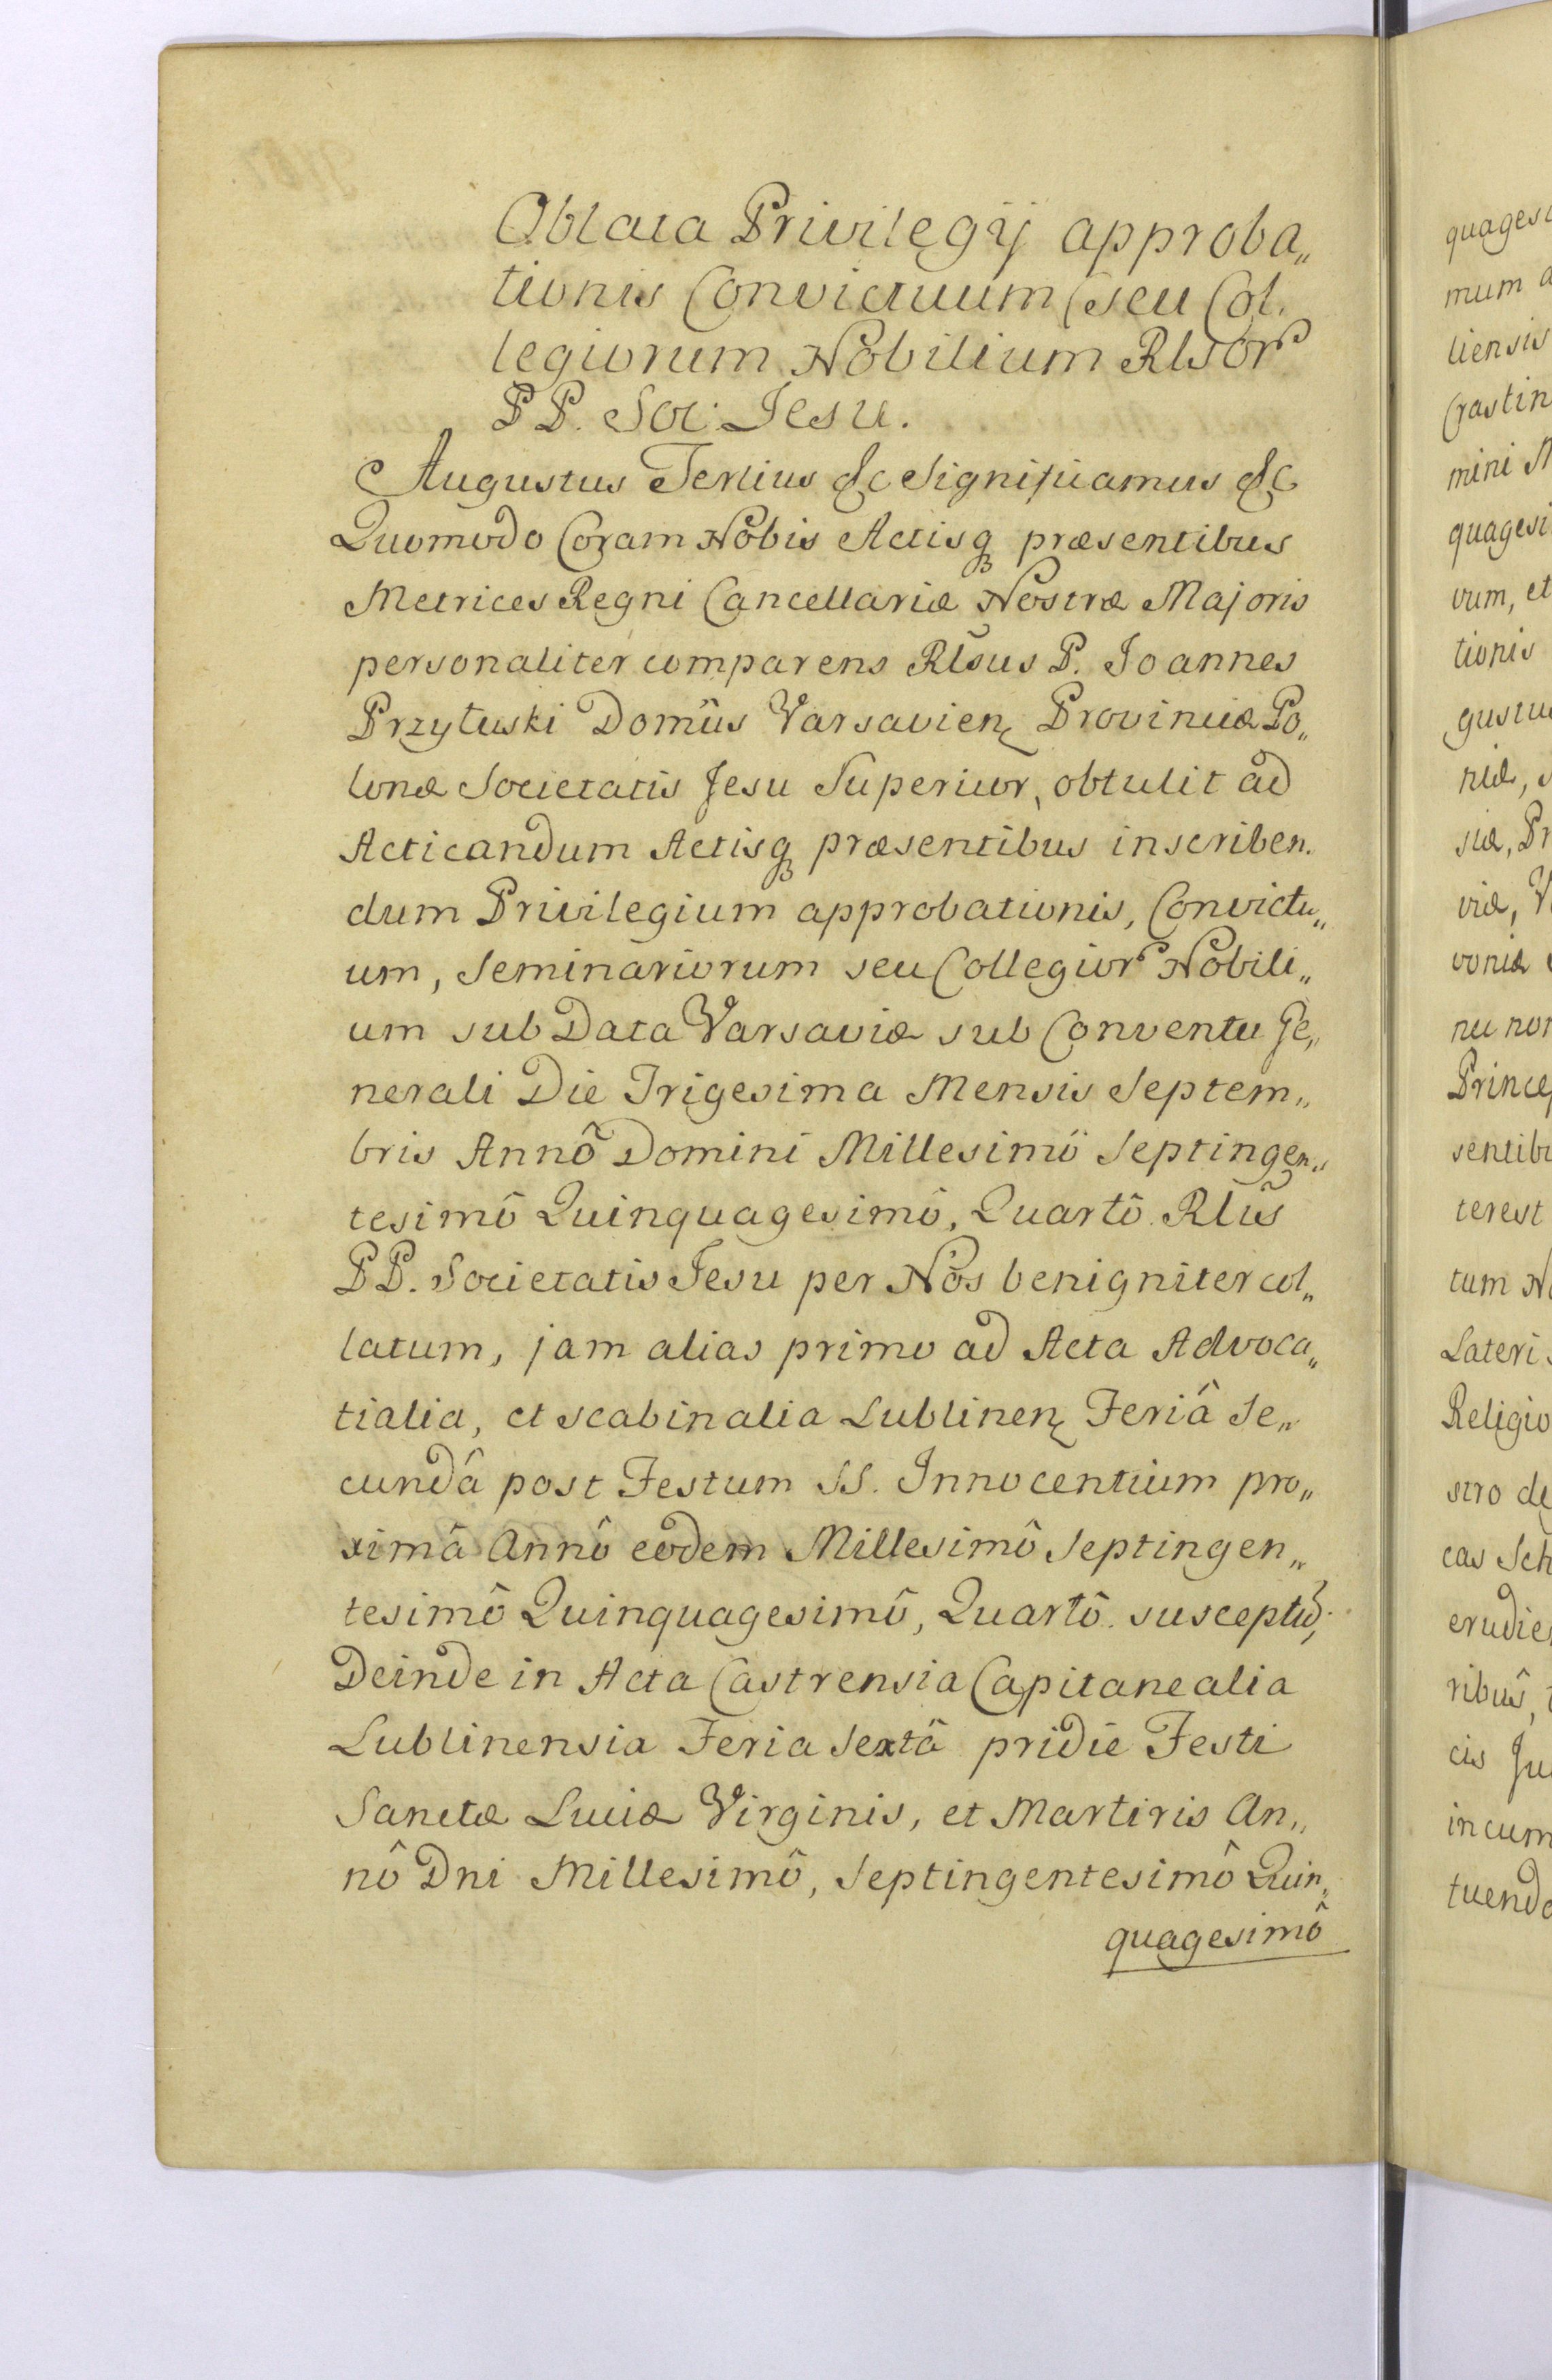 Oblata Privilegij approba„
tionis Convictuum seu Col.
legiorum Nobilium Rlsor
PP. Soc: Jesu.
Augustus Tertius &c Significamus &c
Quomodo Coram Nobis Actisq præsentibus
Metrices Regni Cancellariæ Nostræ Majoris
personaliter comparens Rlsus P. Joannes
Przyłuski Domûs Varsavien Provinciæ Po„
lonæ Societatis Jesu Superior, obtulit ad
Acticandum Actisq præsentibus inscriben.
dum Privilegium approbationis, Convictu„
um, Seminariorum seu Collegior Nobili„
um sub Data Varsaviæ sub Conventu Ge„
nerali Die Trigesima Mensis Septem„
bris Annô Domini Millesimô Septingen„
tesimô Quinquagesimô, Quartô. Rlus
PP. Societatis Jesu per Nos benigniter col„
latum, jam alias primo ad Acta Advoca„
tialia, et scabinalia Lublinen Feriâ Se„
cundâ post Festum SS. Innocentium pro„
ximâ Annô eodem Millesimô Septingen„
tesimô Quinquagesimô, Quartô. susceptũ,
Deinde in Acta Castrensia Capitanealia
Lublinensia Feria Sextâ pridie Festi
Sanctæ Luciæ Virginis, et Martiris An„
nô Dni Millesimô, Septingentesimô Quin„
quagesimô
quages
mum a
liensis
Crastin
mini
quagesi
vum, et
tionis
gustu
niæ,
siæ, Pr
viæ, V
voniæ
nu non
Princep
sentibu
terest
tum No
Lateri
Religio
stro de
cas Sch
erudie
ribus,
cis Ju
incum
tuenda